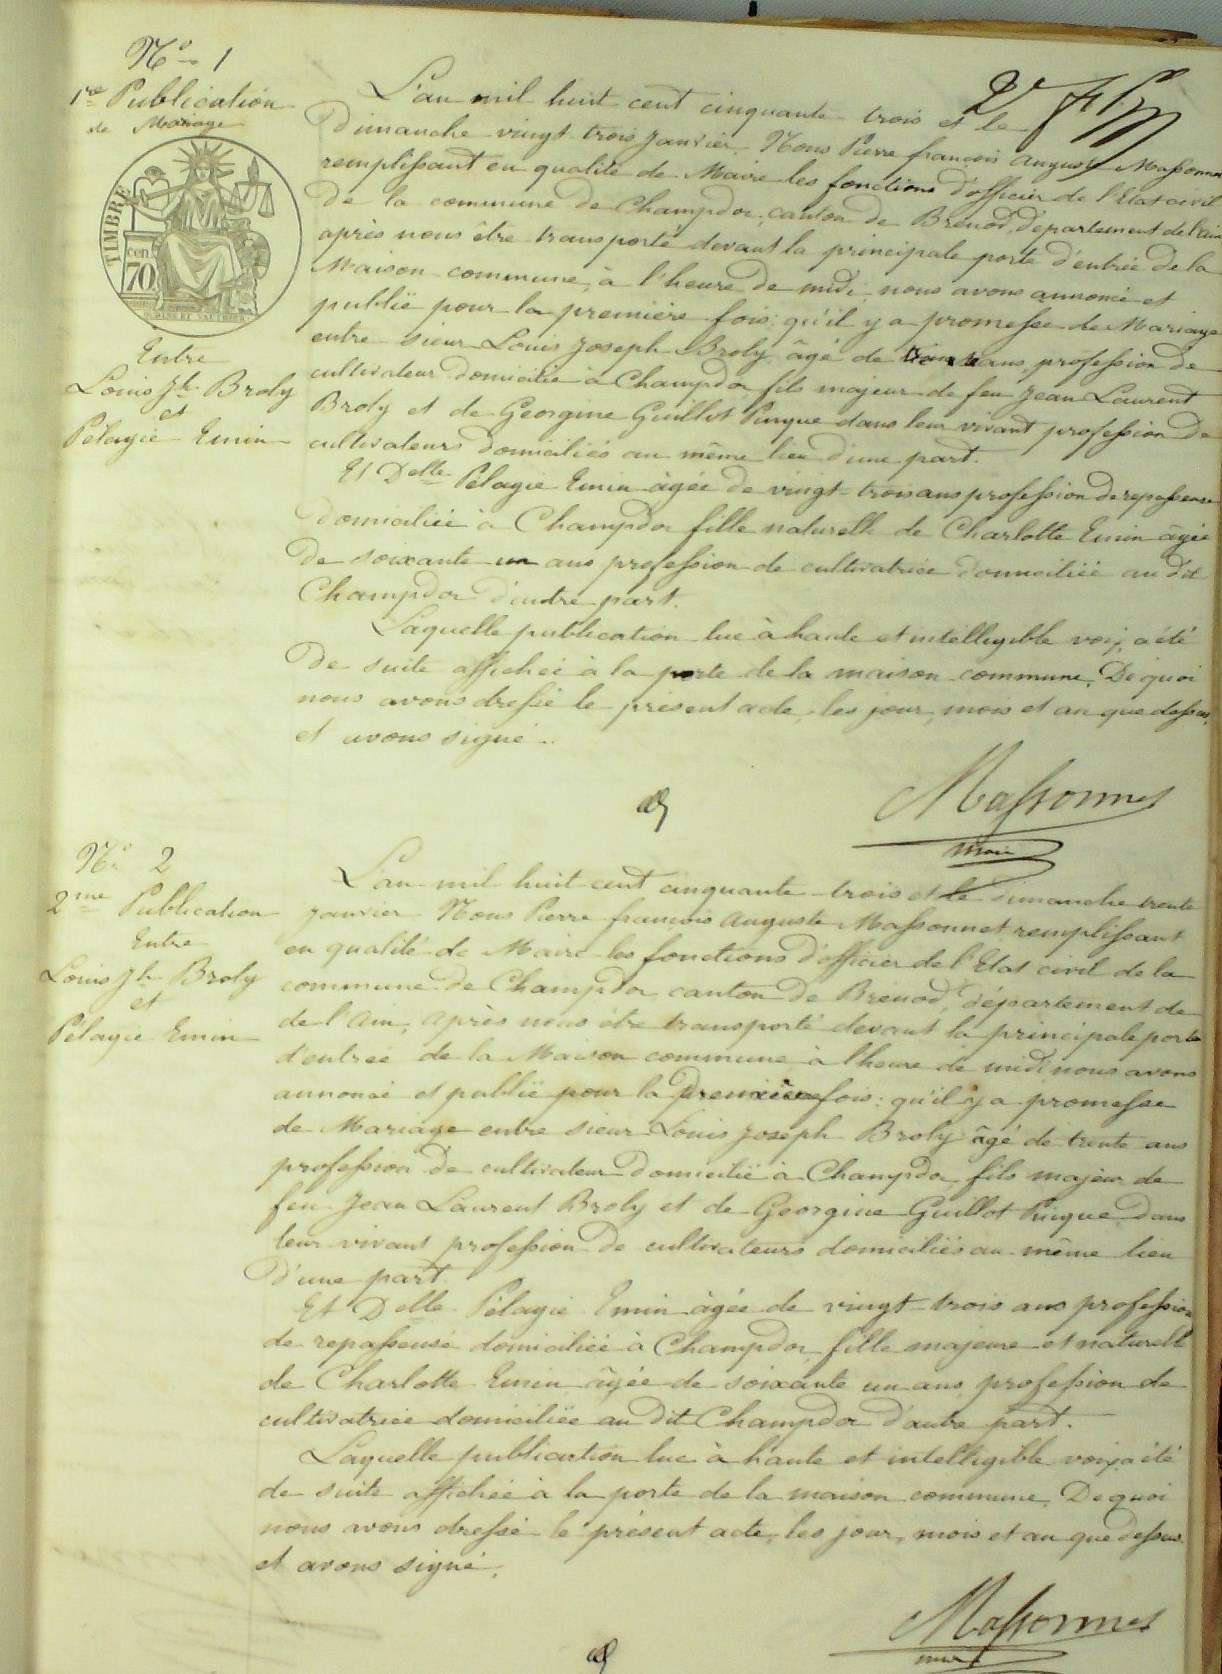 N° 1
1re Publication
de Mariage
TIMBRE
cen
70
Entre
Louis Jh Broly
et
Pélagie Emin
L'an mil huit cent cinquante trois et le
Dimanche vingt trois Janvier Nous Pierre françois Auguste Massonnet
remplissant en qualité de Maire les fonctions d'officier de l'Etat civil
de la commune de Champdor, canton de Brénod, département de l'ain
après nous être transporté devant la principale porte d'entrée de la
Maison commune, à l'heure de midi nous avons annoncé et
publié pour la première fois: qu'il y a promesse de Mariage
entre sieur Louis Joseph Broly âgé de ans, profession de
cultivateur domicilié à Champdor fils majeur de feu Jean Laurent
Broly et de Georgine Guillot Pinque dans leur vivant profession de
cultivateurs domiciliés au même lieu d'une part.
Et Delle Pélagie Emin âgée de vingt-trois ans profession de repasseuse
domiciliée à Champdor fille naturelle de Charlotte Emin âgée
de soixante un ans profession de cultivatrice domiciliée au dit
Champdor d'autre part.
Laquelle publication lue à haute et intelligible voix, a été
de suite affichée à la porte de la maison commune. De quoi
nous avons dressé le présent acte, les jour, mois et an que dessus,
et avons signé.
Massonnet
maire
N° 2
2me Publication
Entre
Louis Jh Broly
et
Pélagie Emin
L'an mil huit cent cinquante trois et le Dimanche trente
Janvier Nous Pierre françois Auguste Massonnet remplissant
en qualité de Maire les fonctions d'officier de l'Etat civil de la
commune de Champdor canton de Brénod, département de
de l'Ain, Après nous être transporté devant la principale porte
d'entrée de la Maison commune à l'heure de midi nous avons
annoncé et publié pour la première fois: qu'il y a promesse
de Mariage entre sieur Louis Joseph Broly âgé de trente ans
profession de cultivateur domicilié à Champdor, fils majeur de
feu Jean Laurent Broly et de Georgine Guillot Pinque dans
leur vivant profession de cultivateurs domiciliés au même lieu
d'une part.
Et Delle Pélagie Emin âgée de vingt trois ans profession
de repasseuse domiciliée à Champdor, fille majeure et naturelle
de Charlotte Emin âgée de soixante un ans, profession de
cultivatrice domiciliée au dit Champdor d'autre part.
Laquelle publication lue à haute et intelligible voix, a été
de suite affichée à la porte de la maison commune. De quoi
nous avons dressé le présent acte, les jour, mois et an que dessus
et avons signé.
Massonnet